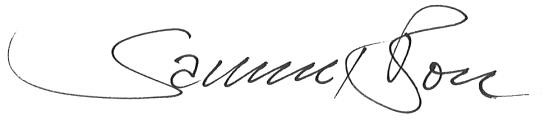 Samuel Bon